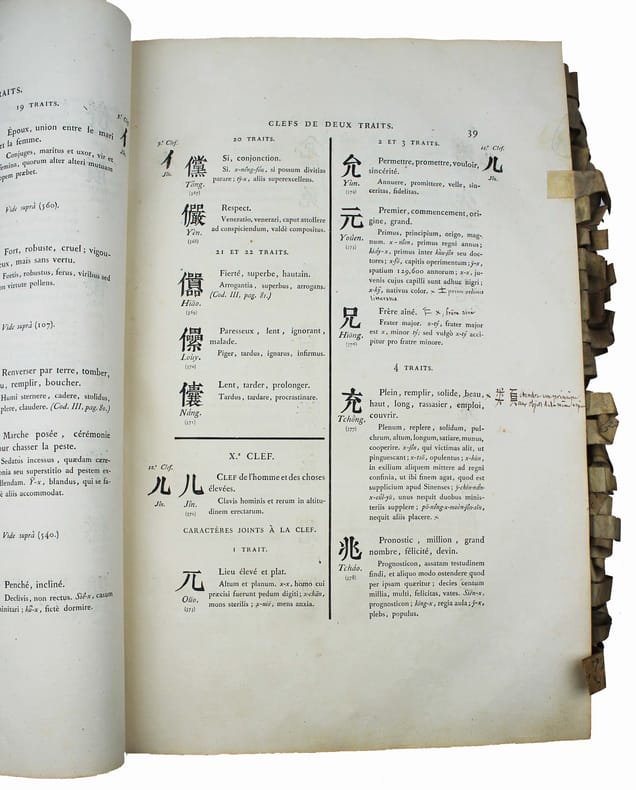 AITS.
19 TRAITS.
Époux, union entre le mari
et la femme.
Conjuges, maritus et uxor, vir et
femina, quorum alter alteri mutuam
opem præbet.
Vide suprà (360).
Fort, robuste, cruel; vigou-
reux, mais sans vertu.
Fortis, robustus, ferus, viribus sed
non virtute pollens.
Vide suprà (107).
Renverser par terre, tomber,
u, remplir, boucher.
Humi sternere, cadere, stolidus,
plere, claudere. (Cod. III, pag. 80.)
Marche posée, cérémonie
our chasser la peste.
Sedatus incessus, quædam cære-
onia seu superstitio ad pestem ex-
ellendam. Ÿ-x, blandus, qui se fa-
è aliis accommodat.
Vide suprà (540.)
Penché, incliné.
Declivis, non rectus.
minitari; fictè dormire.
CLEFS DE DEUX TRAITS.
39
9.e Clef.
亻
Jîn.
20 TRAITS.
儻
Tàng.
(567)
Si, conjonction.
Si. x-nêng-fóu, si possum divitias
parare; tý-x, aliis superexcellens.
儼
Yèn.
(568)
Respect.
Veneratio, venerari, caput attollere
ad conspiciendum, valdè compositus.
21 ET 22 TRAITS.
Hiâo.
(569)
Fierté, superbe, hautain.
Arrogantia, superbus, arrogans.
(Cod. III, pag. 81.)
儽
Loùy.
(570)
Paresseux, lent, ignorant,
malade.
Piger, tardus, ignarus, infirmus.
儾
Náng.
(571)
Lent, tarder, prolonger.
Tardus, tardare, procrastinare.
X.e CLEF.
10.e Clef.
儿
Jîn.
儿
Jîn.
(572)
CLEF de l'homme et des choses
élevées.
Clavis hominis et rerum in altitu-
dinem erectarum.
CARACTÈRES JOINTS À LA CLEF.
1 TRAIT.
兀
Oŭo.
(573)
Lieu élevé et plat.
Altum et planum. x-x, homo cui
præcisi fuerunt pedum digiti; x-chân,
mons sterilis; mens anxia.
2 ET 3 TRAITS.
10.e Clef.
儿
Jîn.
允
Yùn.
(574)
Permettre, promettre, vouloir,
sincérité.
Annuere, promittere, velle, sin-
ceritas, fidelitas.
元
Yoûen.
(575)
Premier, commencement, ori-
gine, grand.
Primus, principium, origo, mag-
num. x-niên, primus regni annus;
primus inter seu doc-
tores; capitis operimentum; y-x,
spatium 129,600 annorum; x-x, ju-
venis cujus capilli sunt adhuc nigri;
nativus color.
兄
Hiông.
(576)
Frère aîné.
Frater major. x-tý, frater major
est x, minor tý; sed vulgò x-tý acci-
pitur pro fratre minore.
4 TRAITS.
充
Tchông.
(577)
Plein, remplir, solide, beau,
haut, long, rassasier, emploi,
couvrir.
Plenum, replere, solidum, pul-
chrum, altum, longum, satiare, munus,
cooperire. qui victimas alit, ut
pinguescant; x-tsŏ, opulentus; x-kiūn,
in exilium aliquem mittere ad regni
confinia, ut ibi finem agat, quod est
supplicium apud Sinenses;
unus nequit duobus minis-
teriis supplere;
nequit aliis placere.
兆
Tcháo.
(578)
Pronostic, million, grand
nombre, félicité, devin.
Prognosticon, assatam testudinem
findi, et aliquo modo ostendere quod
per ipsam quæritur; decies centum
millia, multi, felicitas, vates. Siēn-x,
prognosticon; kīng-x, regia aula;
plebs, populus.